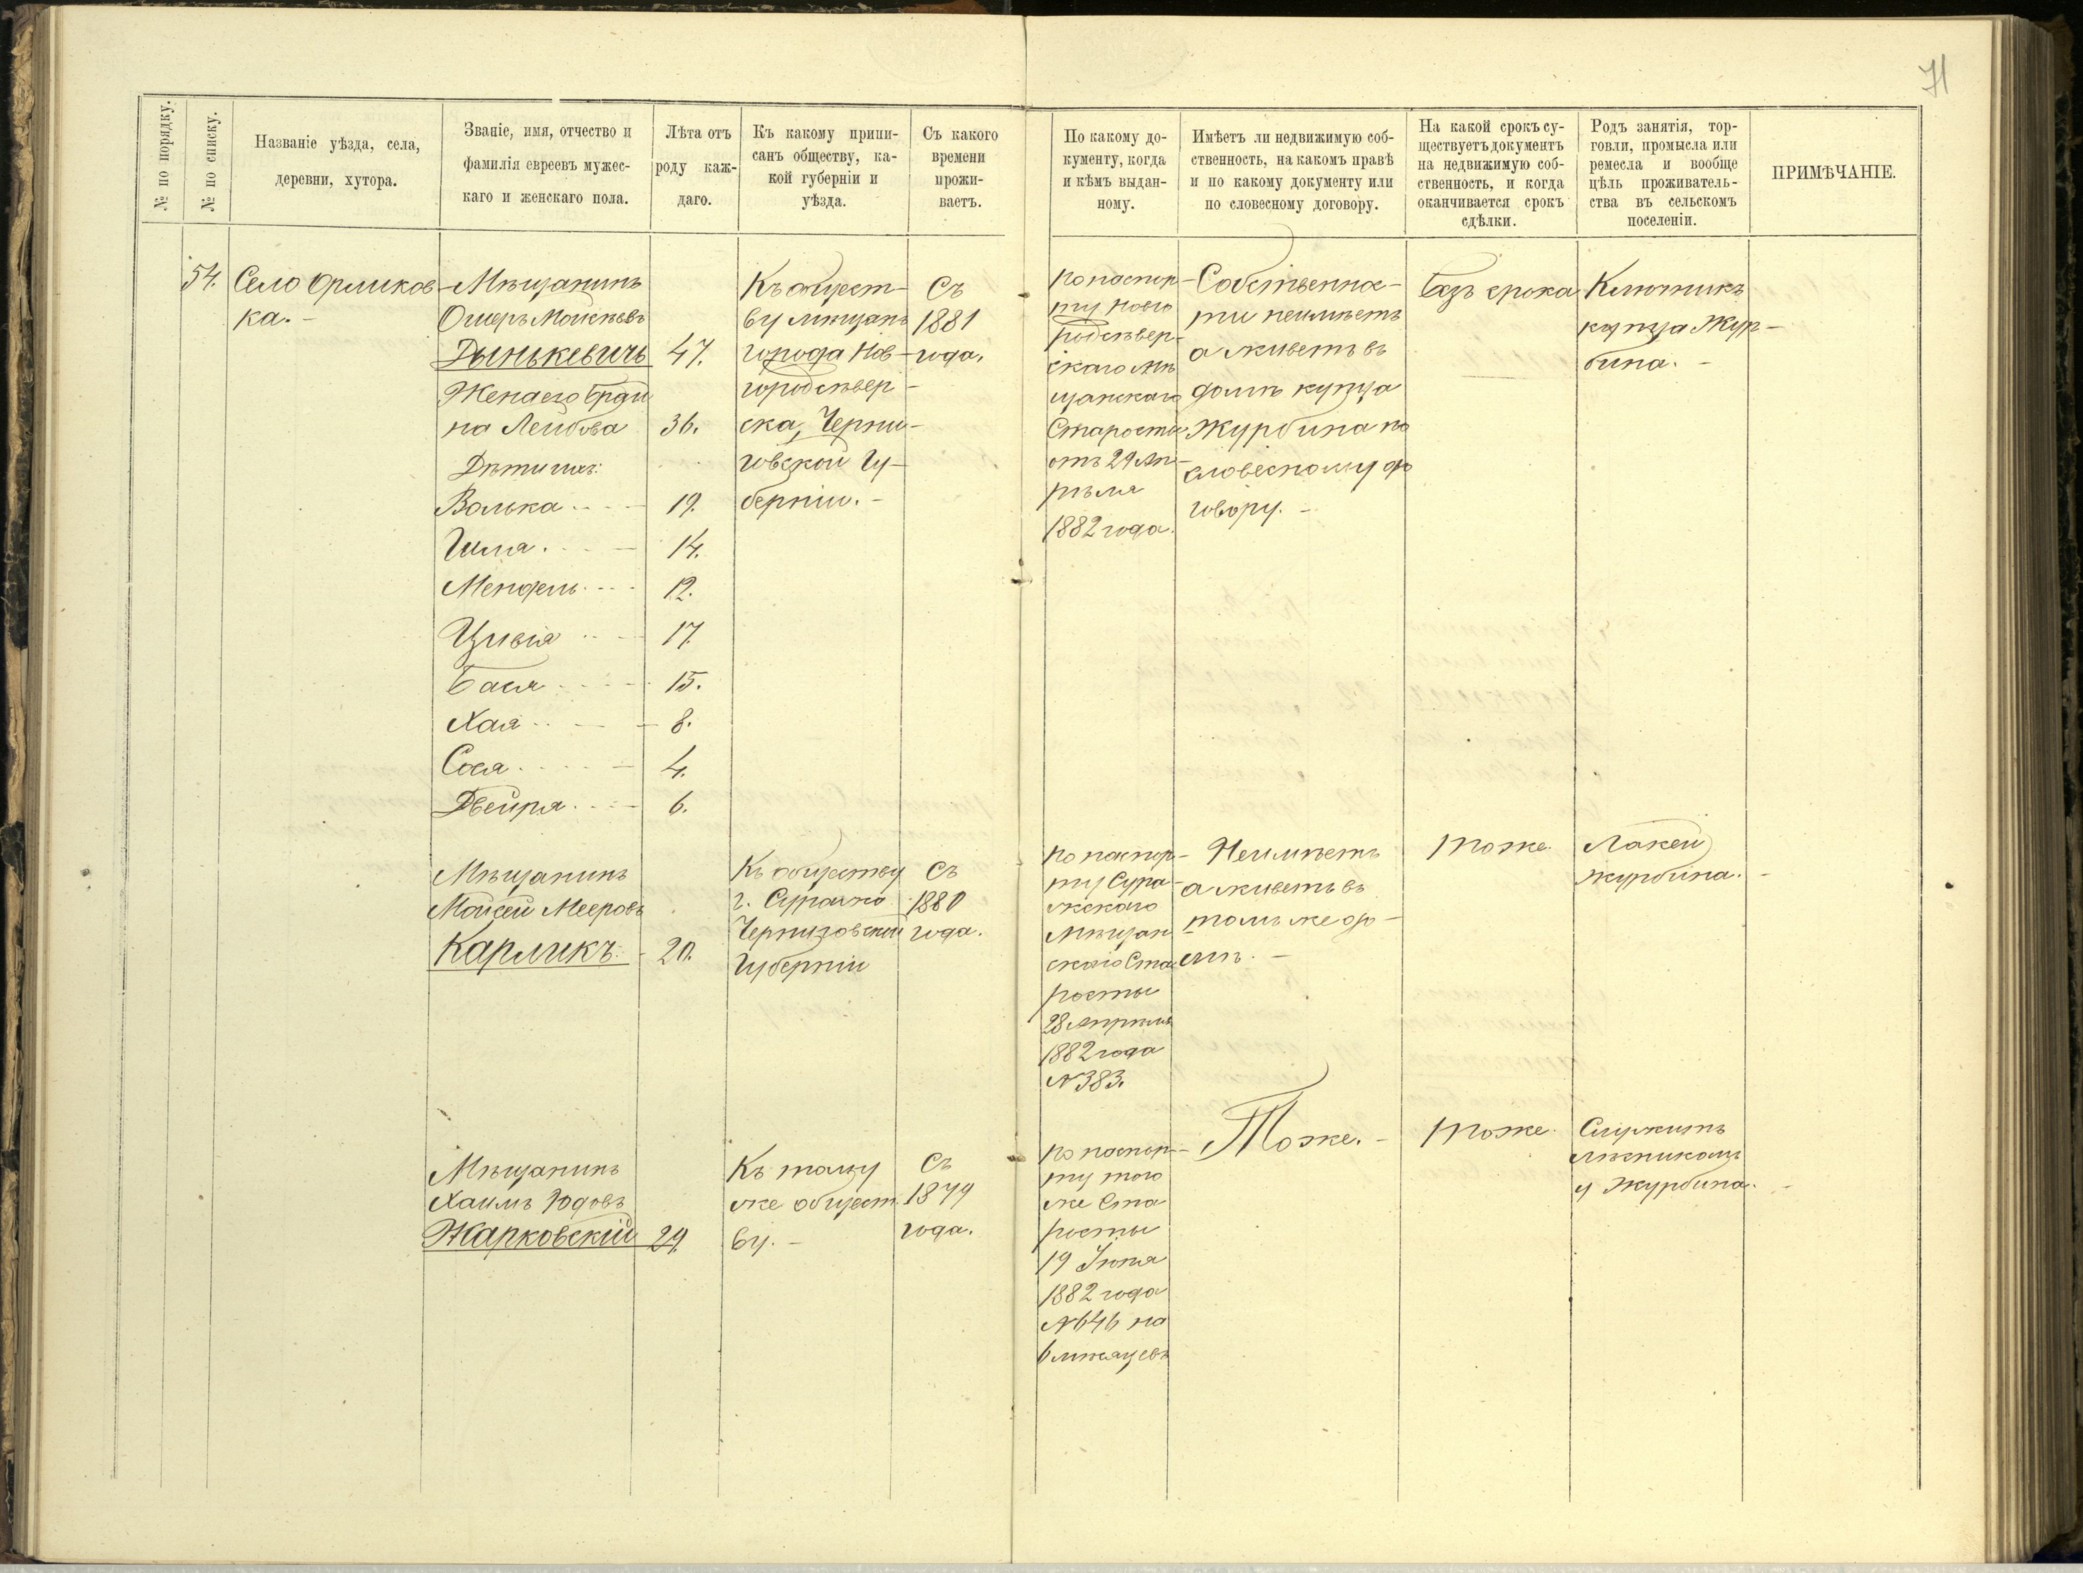 71
№ по порядку.
№ по списку.
Названіе уѣзда, села,
деревни, хутора.
Званіе, имя, отчество и
фамилія евреевъ мужес-
каго и женскаго пола.
Лѣта отъ
роду каж-
даго.
Къ какому припи-
санъ обществу, ка-
кой губерніи и
уѣзда.
Съ какого
времени
прожи-
ваетъ.
По какому до-
кументу, когда
и кѣмъ выдан-
ному.
Имѣетъ ли недвижимую соб-
ственность, на какомъ правѣ
и по какому документу или
по словесному договору.
На какой срокъ су-
ществуетъ документъ
на недвижимую соб-
ственность, и когда
оканчивается срокъ
сдѣлки.
Родъ занятія, тор-
говли, промысла или
ремесла и вообще
цѣль проживатель-
ства въ сельскомъ
поселеніи.
ПРИМѢЧАНІЕ.
54.
Село Орликов-
ка.-
Мѣщанинъ
Ошеръ Моисѣевъ
Дынькевичъ 47.
Жена его Брай
на Лейбова 36.
Дѣти ихъ:
Волька 19.
Гиля 14.
Мендель 12.
Цивія 17.
Бася 15.
Хая 8.
Сося 4.
Двейра 6.
Къ общест-
ву мѣщанъ
города Нов-
городсѣвер-
ска, Черни-
говской Гу-
берніи.-
Съ
1881
года.
По паспор-
ту Ново
родсѣвер-
скаго мѣ
щанскаго
Старосты
отъ 29 Ап-
рѣля
1882 года.
Собственнос-
ти неимѣетъ
а живетъ въ
домѣ купца
Журбина по
словесному до
говору.-
Безъ срока
Ключникъ
купца Жур-
бина.-
Мѣщанинъ
Моисей Мееровъ
Карликъ 20.
Къ обществу
г. Суража
Черниговской
Губерніи
Съ
1880
года.
По паспор-
ту Сура-
жскаго
Мѣщан
скаго Ста
росты
28 Апрѣля
1882 года
№383.
Неимѣетъ
а живетъ въ
томъ же до-
мѣ.-
тоже.
Лакей
Журбина.-
Мѣщанинъ
Хаимъ Юдовъ
Жарковскій 29.
Къ тому
же общест-
ву.-
Съ
1879
года.
По паспор-
ту того
же Ста
росты
19 Іюня
1882 года
№646 на
6 мѣсяцевъ
Тоже.-
тоже.
Служитъ
лѣсникомъ
у Журбина.-